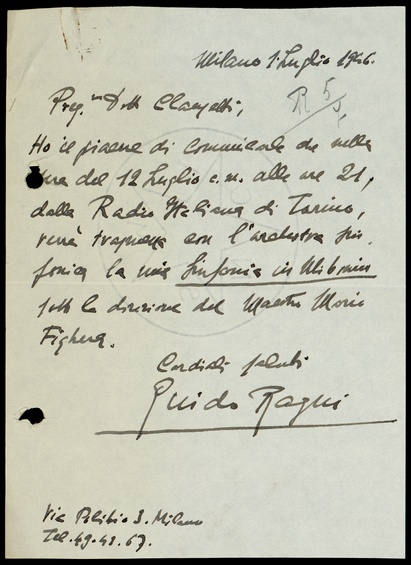 Milano 1. Luglio 1946.
R 5
Preg.mo Dott. Clausetti,
Ho il piacere di comunicarle che nella
sera del 12 Luglio c.m. alle ore 21,
dalla Radio Italiana di Torino,
verrà trasmessa con l'orchestra sin-
fonica la mia Sinfonia in Mib min
sotto la direzione del Maestro Mario
Fighera.
Cordiali saluti
Guido Ragni
Via Polibio 3. Milano
Tel. 49.48.67.